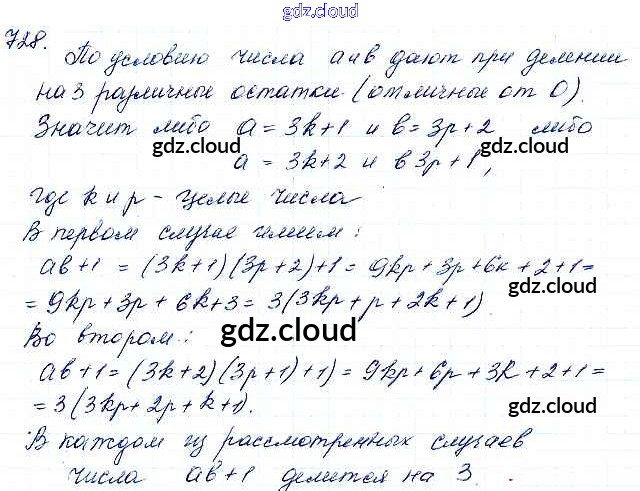 gdz.cloud
728.
По условию числа a и в дают при делении
на 3 различные остатки (отличные от 0).
Значит либо a = 3k+1 и в = 3p+2 либо
gdz.cloud gdz.cloud
a = 3k+2 и в 3p+1,
где k и p - целые числа
В первом случае имеем:
aв+1 = (3k+1)(3p+2)+1 = 9kp+3p+6k+2+1=
gdz.cloud
= 9kp+3p+6k+3 = 3(3kp+p+2k+1)
Во втором:
gdz.cloud
aв+1=(3k+2)(3p+1)+1) = 9kp+6p+3k+2+1=
= 3(3kp+2p+k+1).
gdz.cloud
В каждом из рассмотренных случаев
числа aв+1 делится на 3.
gdz.cloud gdz.cloud